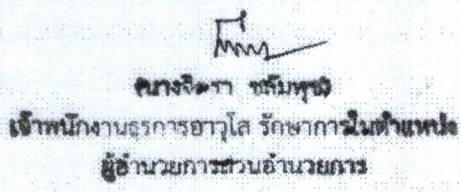 (นางจิตรา
เจ้าพนักงานธุรการอาวุโส รักษาการในตำแหน่ง
ผู้อำนวยการส่วนอำนวยการ